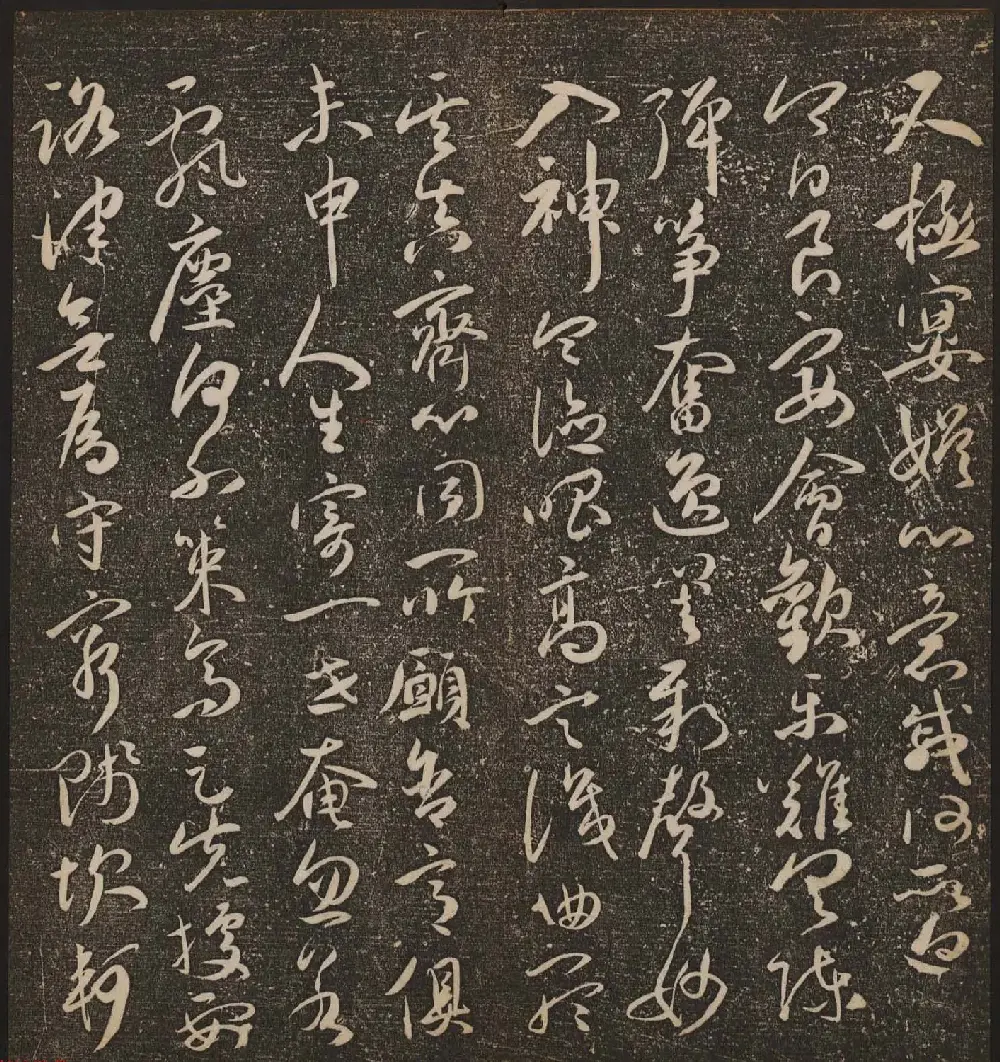 又極宴娛心意戚何所迫
今日良宴會歡樂難具陳
彈箏奮逸響新聲妙
入神令德唱高言識曲聽
其真齊心同所願含意俱
未申人生寄一世奄忽若
飄塵何不策高足先據要
路津無為守窮賤坎軻